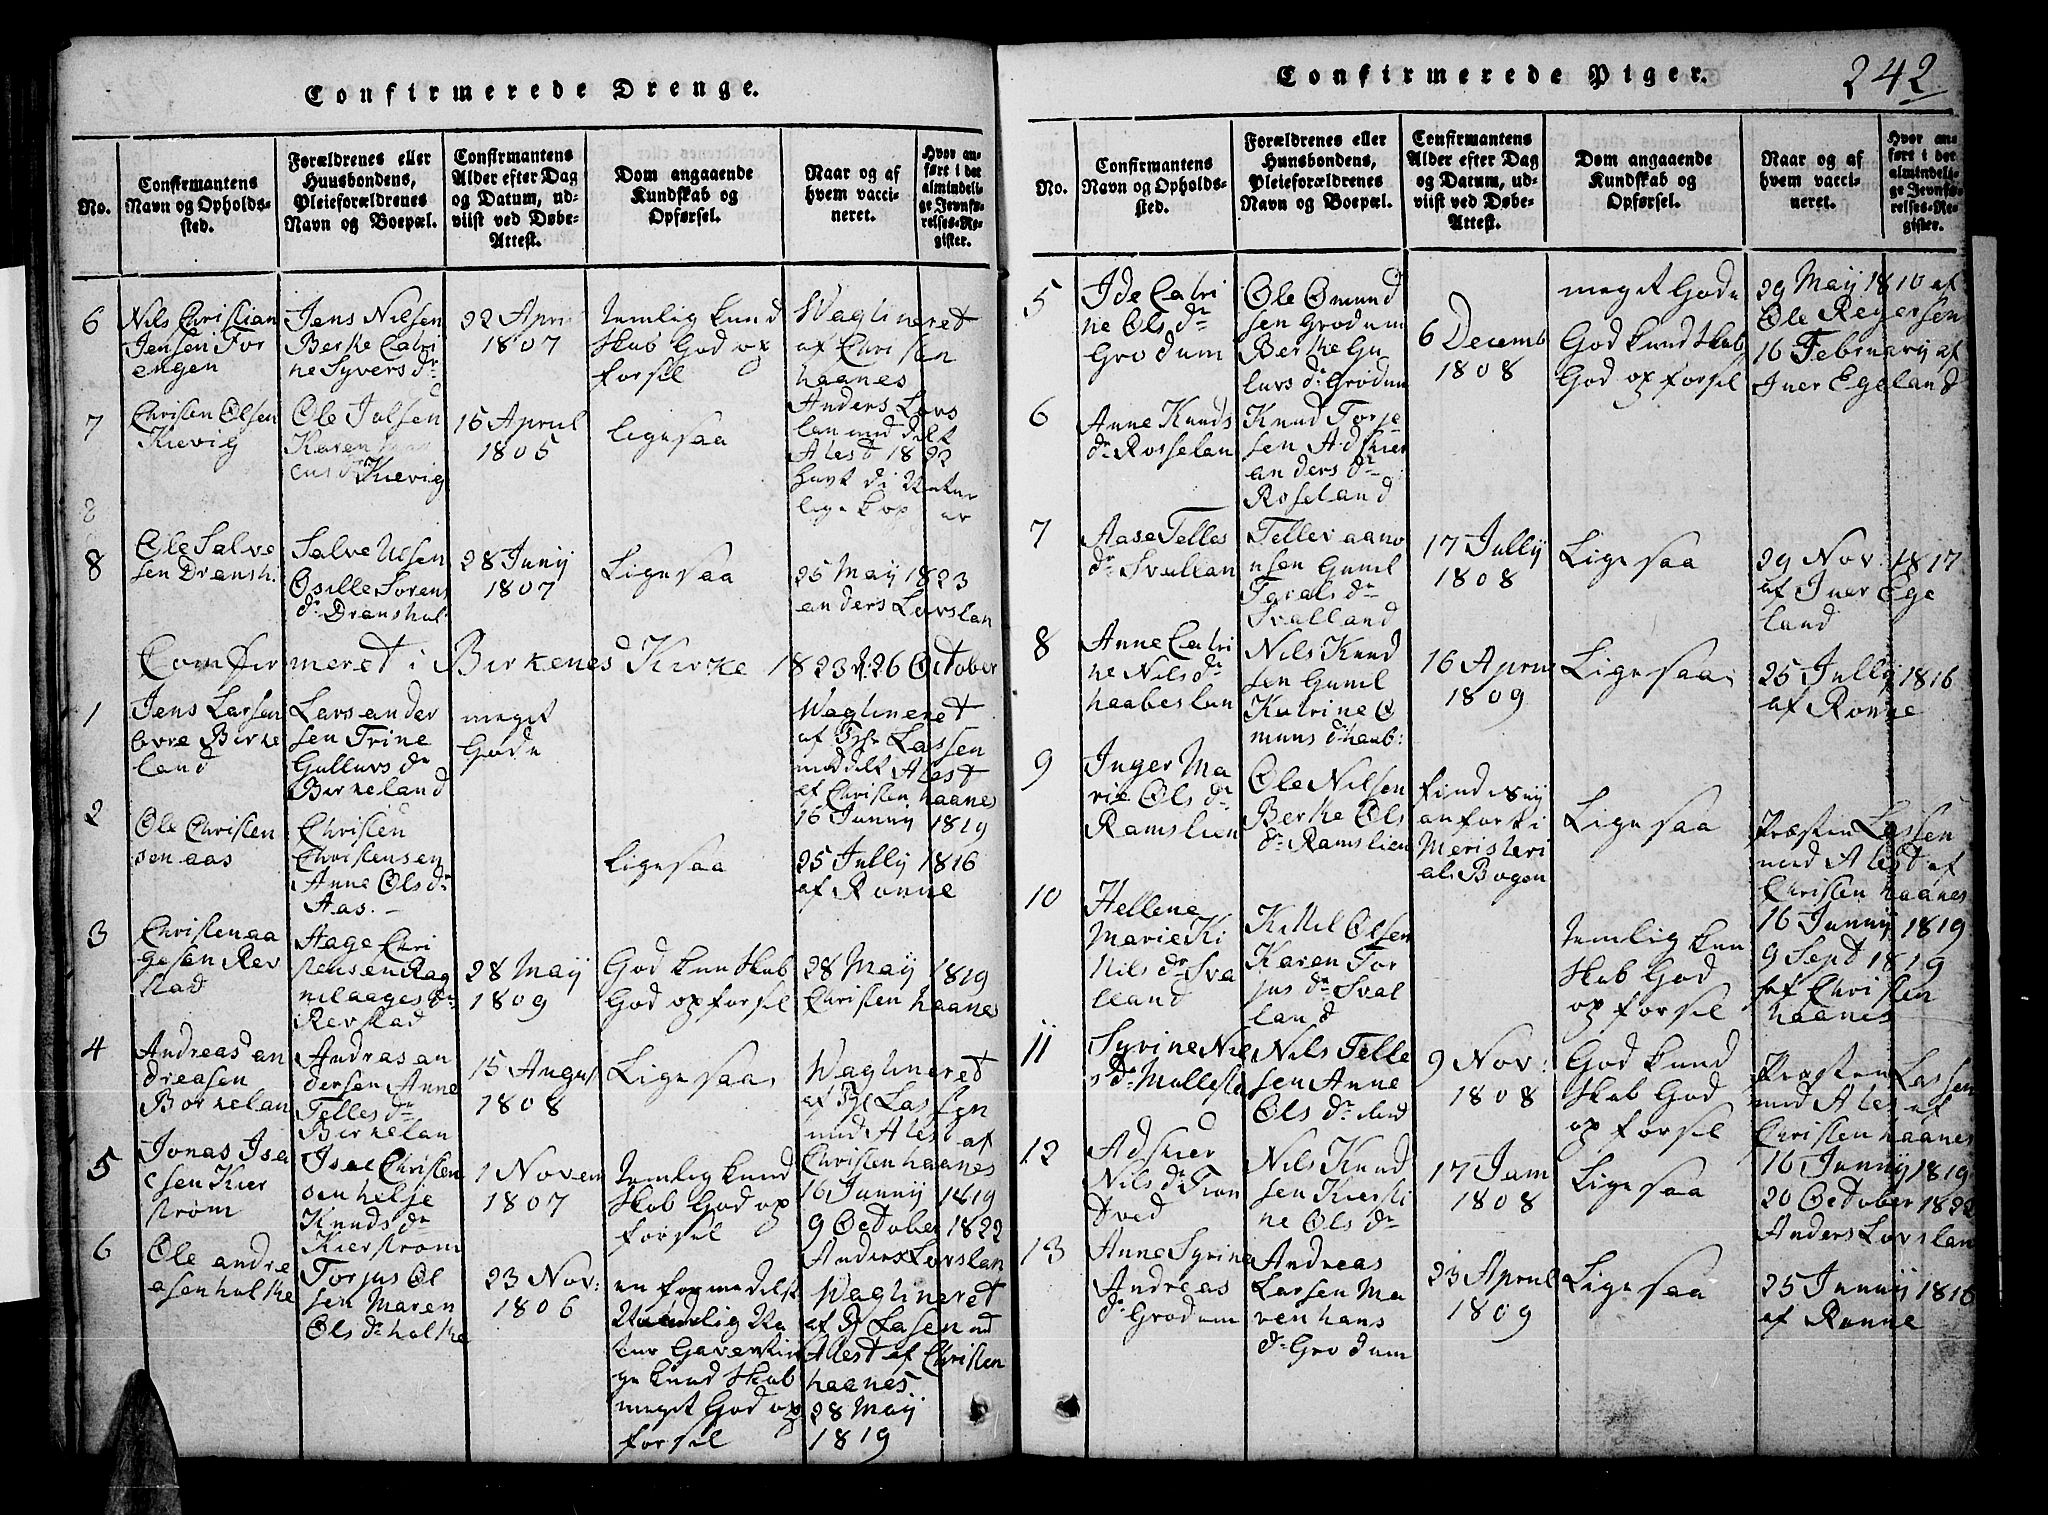 Confirmerede Drenge.
No.
Confirmantens
Navn og Opholds-
sted.
Forældrenes eller
Huusbondens,
Pleieforældrenes
Navn og Boepæl.
Confirmantens
Alder efter Dag
og Datum, ud-
viist ved Døbe-
Attest.
Dom angaaende
Kundskab og
Opførsel.
Naar og af
hvem vacci-
neret.
Hvor an-
ført i det
almindeli-
ge Jevnfø-
relses-Re-
gister.
6
Nils Christian
Jensen Tor
engen
Jens Nielsen
Berthe Catri
ne Syvers dr
22 April
1807
temlig kund
skab God op
forsel
Waglineret
af Christen
haanes
7
Christen Olsen
Kievig
Ole Jalsen
Karen
ens dr Kievig
15 Aprul
1805
lige saa
Anders Lovs
lan med delt
Atest 1822
havt di Natur
lige kop er
8
8
Ole Salve
sen Dransh.
Salve Ulsen
Osille Sorens
dr Dranshul
28 Juny
1807
Lige saa
25 May 1823
anders Lovslan
Comfirmeret i Birkenes Kirke 1823 d. 26 October
1
Jens Larsen
Øvre Birke
land
Lars ander
sen Trine
Gulluvs dr
Birkeland
meget
Gode
Waglineret
af Pr Lassen
med delt Atest
af Christen haanes
16 Junny 1819
2
Ole Christen
sen aas
Christen
Christensen
Anne Ols dr
Aas.
Lige saa
25 Jully 1816
af Ronne
3
Christen aa
gesen Rev
stad
Aage Chri
stensen Rag
nil aages dr
Revstad
28 May
1809
God kunskab
God op forsel
28 May 1819
Christen haanes
4
Andreas an
dreasen
Borkelan
Andras an
dersen Anne
Telles dr
Birkelan
15 Augus
1808
Lige saa
Waglineret
af Pr Lassen
med Atest af
Christen haanes
16 Junny 1819
5
Jonas Isa
csen Kier
strøm
Isac Christen
sen helje
Knuds dr
Kierstrom
1 Novem
1807
temlig kund
skab God op
forsel
9 October 1822
Anders Lovslan
6
Ole andre
asen holthe
Torjus Ol
sen Maren
Ols dr holthe
23 Nov:
1806
en formedelst
Na
tur Gaver Rin
ge kund skab
meget God op
forsel
Waglineret
af Pr Lasen ud
Atest af Christen
haanes
28 May
1819
Confirmerede Piger.
242
No.
Confirmantens
Navn og Opholds-
sted.
Forældrenes eller
Huusbondens,
Pleieforældrenes
Navn og Boepæl.
Confirmantens
Alder efter Dag
og Datum, ud-
viist ved Døbe-
Attest.
Dom angaaende
Kundskab og
Opførsel.
Naar og af
hvem vacci-
neret.
Hvor an-
ført i det
almindeli-
ge Jevnfø-
relses-Re-
gister.
5
Ide Catri
ne Ols dr
Grodum
Ole Omund
sen Grodum
Berthe Gu
luvs dr Grodum
6 Decemb
1808
meget Gode
God kund skab
God op forsel
29 May 1810 af
Ole Regersen
16 February af
Iver Egeland
6
Anne Knuds
dr Rosselan
Knud Torje
sen Adskier
anders dr
Roseland
7
Aase Telles
dr Svallan
Teller aanv
nsen Gunil
Tarals dr
Svalland
17 Jully
1808
Lige saa
29 Nov. 1817
af Iver Ege
land
8
Anne Catri
ne Nils dr
haabeslan
Nils Knud
sen Gunil
Katrine O
muns dr haab:
16 Aprul
1809
Lige saa
25 Jully 1816
af Ronne
9
Inger Ma
rie Ols dr
Ramslien
Ole Nilsen
Berthe Ols
dr Ramslien
findes ey
anfort i
Meristeri
als Bogen
Lige saa
Præsten Lassen
med Atest af
Christen haanes
16 Junny 1819
10
Hellene
Marie Ki
tils dr Sva
lland
Kittil Olsen
Karen Tor
jus dr Sval
land
temlig kun
skab God
op forsel
9 Sept 1819
af Christen
haanes
11
Syrine Nil
s dr Mollesta
Nils Telle
sen Anne
Ols dr
9 Nov:
1808
God kund
skab God
op forsel
Præsten Lassen
med Ates af
Christen haanes
16 Junny 1819
12
Adskier
Nils dr Tron
dved
Nils Knud
sen Kiersti
ne Ols dr
17 Jam
1808
Lige saa
20 October 1822
Anders Lovslan
13
Anne Syrine
Andreas
dr Grodum
Andreas
Larsen Ma
ren hans
dr Grodum
23 Aprul
1809
Lige saa
25 Junny 1816
af Ronne